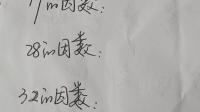 的因数：
28的因数：
32的因数：